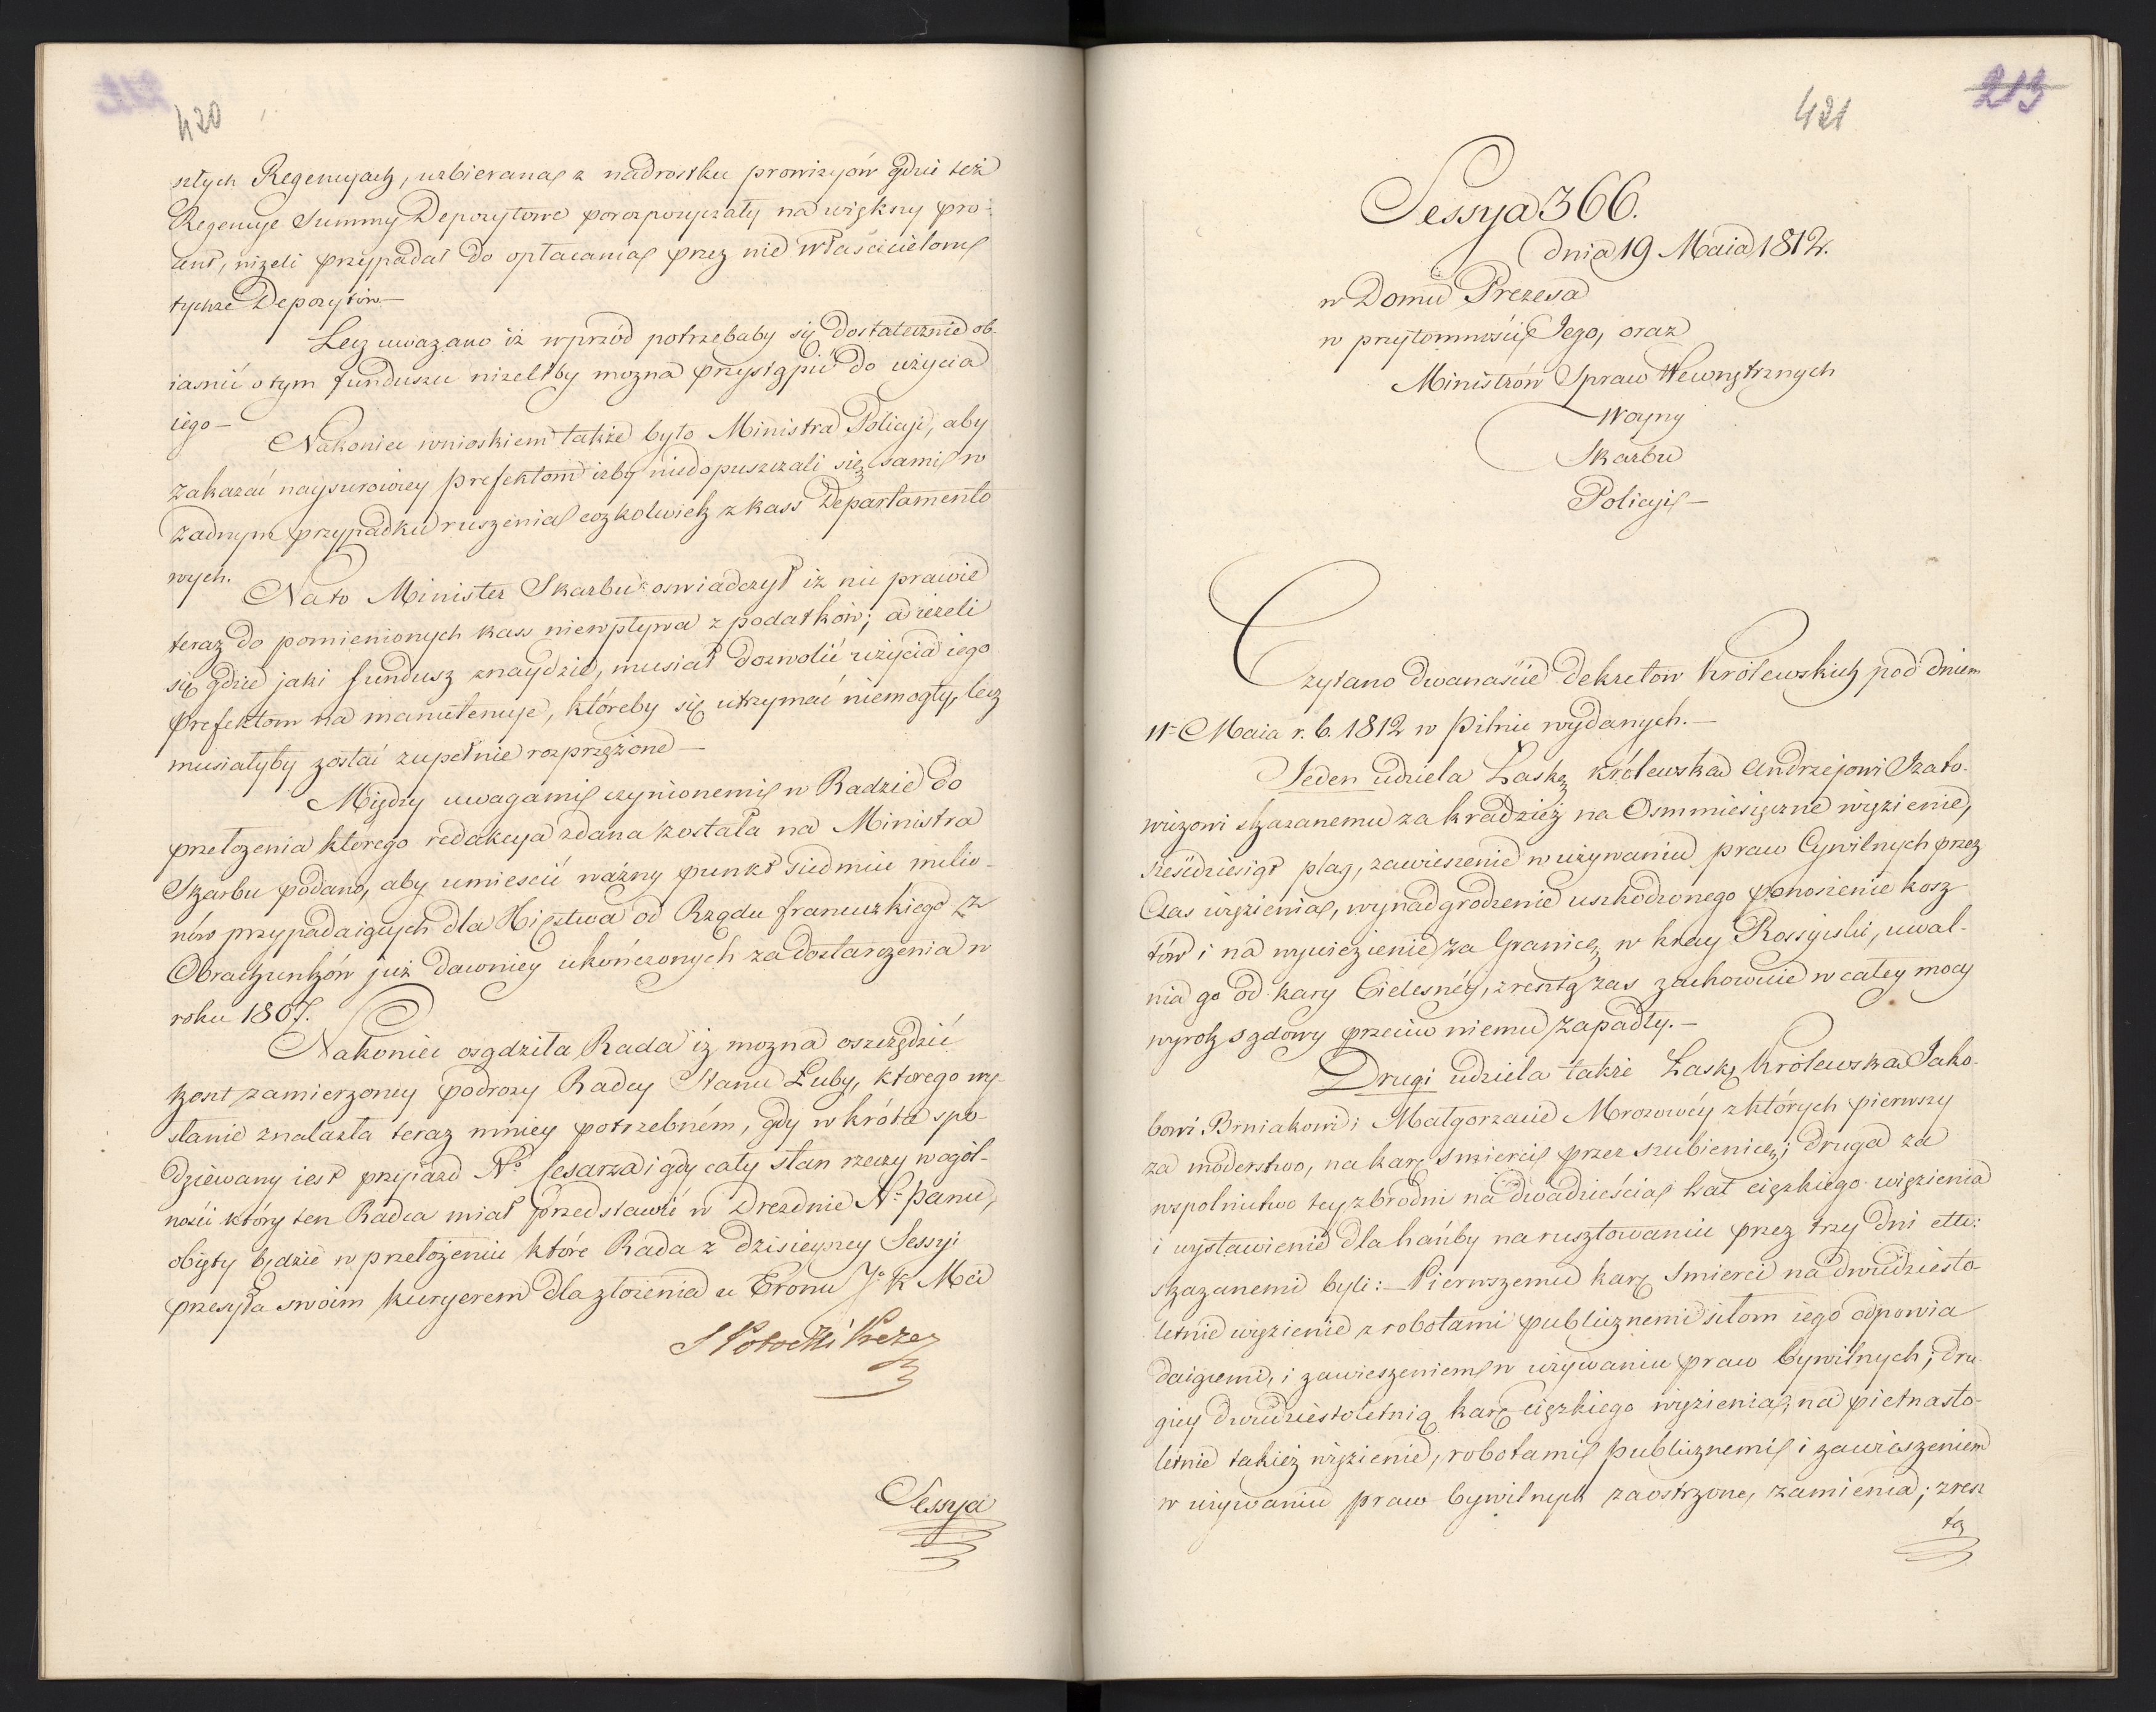 420
szłych Regencyach, uzbierana z nadrostku prowizyów gdzie też
Regencye Summy Depozytowe porozpożyczały na większy pro-
cent, niżeli przypadał do opłacania przez nie właścicielom
tychże Depozytów. —
Lecz uważano iż wprzód potrzebaby się dostatecznie ob-
iasnić o tym funduszu niżeliby można przystąpić do użycia
iego —
Nakoniec wnioskiem także było Ministra Policyi, aby
zakazać naysurowiey prefektom iżby niedopuszczali się sami w
żadnym przypadku ruszenia cożkolwiek z kass Departamento
wych.
Na to Minister Skarbu oswiadczył iż nic prawie
teraz do pomienionych kass niewpływa z podatków; a ieżeli
się gdzie jaki fundusz znaydzie, musiał dozwolić użycia iego
prefektom na manutencye, któreby się utrzymać niemogły, lecz
musiałyby zostać zupełnie rozprzężone —
Między uwagami uczynionemi w Radzie do
przełożenia ktorego redakcya zdana została na Ministra
Skarbu podano, aby umiescić ważny punkt siedmiu milio-
nów przypadaiących dla Xięstwa od Rządu francuzkiego z
Obrachunków już dawniey ukończonych za dostarczenia w
roku 1807.
Nakoniec osądziła Rada iż można oszczędzić
koszt zamierzoney podrozy Radcy Stanu Łuby, ktorego wy-
słanie znalazła teraz mniey potrzebném, gdy wkrótce spo-
dziewany iest przyiazd No. Cesarza i gdy cały stan rzeczy w ogól-
ności który ten Radca miał przedstawić w Dreznie No. Panu,
obięty będzie w przełożeniu które Rada z dzisieyszey Sessyi
przesyła swoim kuryerem dla złożenia u Tronu J. K. Mci
S Potocki Prezes
Sessya
421
213
Sessya 366.
dnia 19 Maia 1812.
w Domu Prezesa
w przytomności Jego, oraz
Ministrów Spraw Wewnętrznych
Woyny
Skarbu
Policyi —
Czytano dwanaście Dekretów Królewskich pod dniem
11. Maia r. b. 1812 w Pilnic wydanych. —
Jeden udziela Łaskę królewska Andrzejowi Szato-
wiczowi skazanemu za kradzież na Osmmiesięczne więzienie,
sześćdziesiąt plag, zawieszenie w używaniu praw Cywilnych przez
Czas więzienia, wynadgrodzenie uszkodzonego ponoszenie kosz-
tów i na wywiezienie za Granicę w kray Rossyiski, uwal-
nia go od kary Cielesnéy, resztą zas zachowuie w całey mocy
wyrok sądowy przeciw niemu zapadły. —
Drugi udziela także Łaskę Królewska Jako-
bowi Brniakowi i Małgorzacie Mrozowéy z których pierwszy
za moderstwo, na karę smierci przez szubienicę; druga za
wspolnictwo tey zbrodni na dwadzieścia lat cięzkiego więzienia
i wystawienie dla hańby na rusztowaniu przez trzy dni ettc:
skazanemi byli: — Pierwszemu karę smierci na dwudziesto-
letnie więzienie z robotami publicznemi siłom iego odpowia
daiącemi, i zawieszeniem w używaniu praw Cywilnych; dru-
giey dwudziestoletnią karę cięzkiego więzienia, na pietnasto-
letnie takież więzienie, robotami publicznemi i zawieszeniem
w używaniu praw Cywilnych zaostrzone, zamienia; zresz
tą